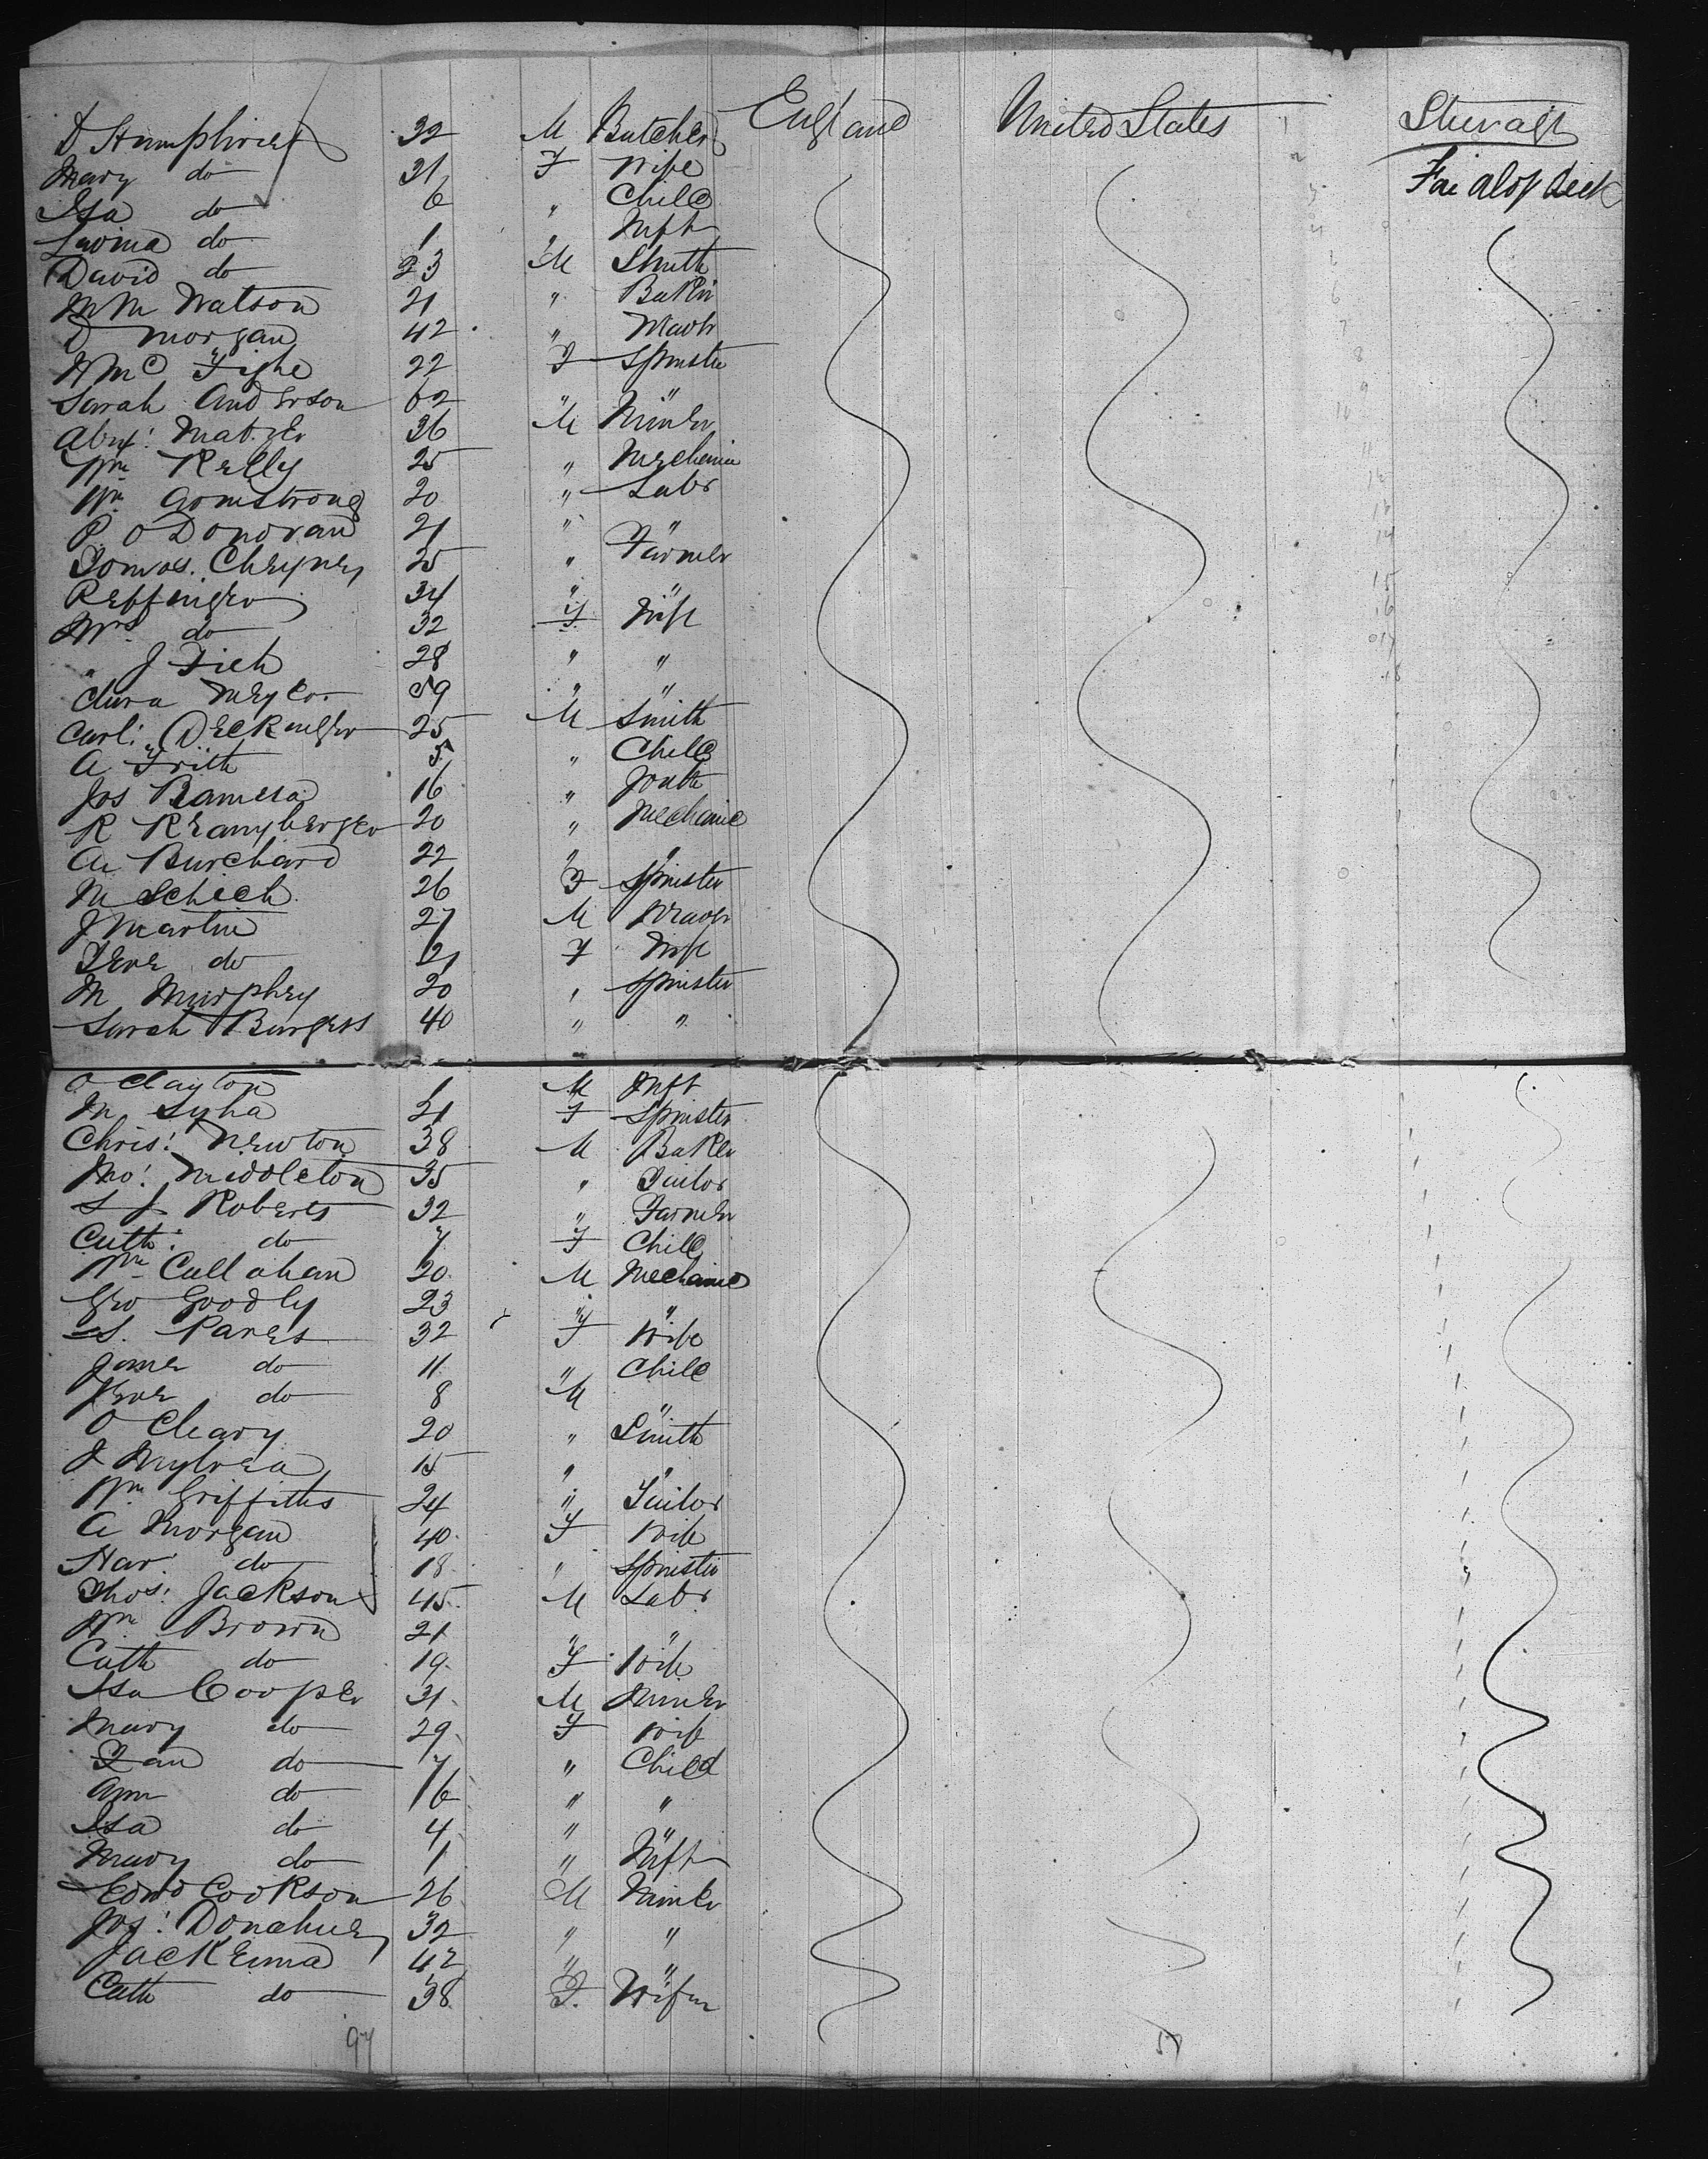 D Humphries 32 M Butcher England United States Steerage
Mary do 31 F Wife
Isa do 6 " Child
Lavinia do 1 " Inft
David do 23 M Smith
Wm Watson 21 " Baker
D Morgan 42 "
Mc Tighe 22 F Spinster
Sarah Anderson 62 " "
Alexr: 36 M Miner
Wm Kelly 25 " Mechanic
Wm Armstrong 20 " Labr
P. O Donovan 21 " "
Cheyney 25 " Farmer
Reffinger 34 "
Mrs do 32 F. Wife
" J 28 " "
Clara Meyer 59 " "
Carl: Deckinger 25 M Smith
A Frith 5 " Child
Jos 16 " Youth
R 20 " Mechanic
A Burchard 22 " "
M Schech 26 F Spinster
J Martin 27 M
do 21 F Wife
M Murphey 20 " Spinster
Sarah Burgess 40 " "
O Clayton 1 M Inft
M Lyha 21 F Spinster
Chris: Newton 38 M Baker
Jno: Middleton 35 " Tailor
S J Roberts 32 " Farmer
Cath: do 7 F Child
Wm Callahan 20 M Mechanic
Geo Goodly 23 " "
S. Pares 32 F Wife
Jane do 11 " Child
do 8 M "
O Cleary 20 " Smith
J Mylrea 15 " "
Wm Griffiths 24 " Tailor
A Morgan 40 F Wife
Har: do 18 " Spinster
Thos: Jackson 45 M Labr
Wm Brown 21 " "
Cath do 19 F Wife
Isa Cooper 31 M Miner
Mary do 29 F Wife
do 7 " Child
Ann do 6 " "
Isa do 4 "
Mary do 1 " Inft
Edwd Cookson 26 M Miner
Jos: Donahue 32 " "
Jack 42 " "
Cath do 38 F. Wife
97